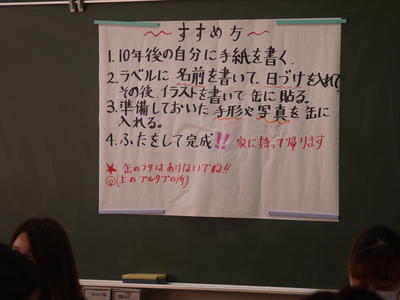 〜すすめ方〜
1. 10年後の自分に手紙を書く.
2. ラベルに 名前を書いて、日づけを入れて
その後、イラストを書いて 缶に貼る.
3. 準備しておいた 手形や写真を缶に
入れる。
4. ふたをして完成!! 家に持って帰ります
★ 缶のフタはあけないでね!!
(上のプルタブの所)